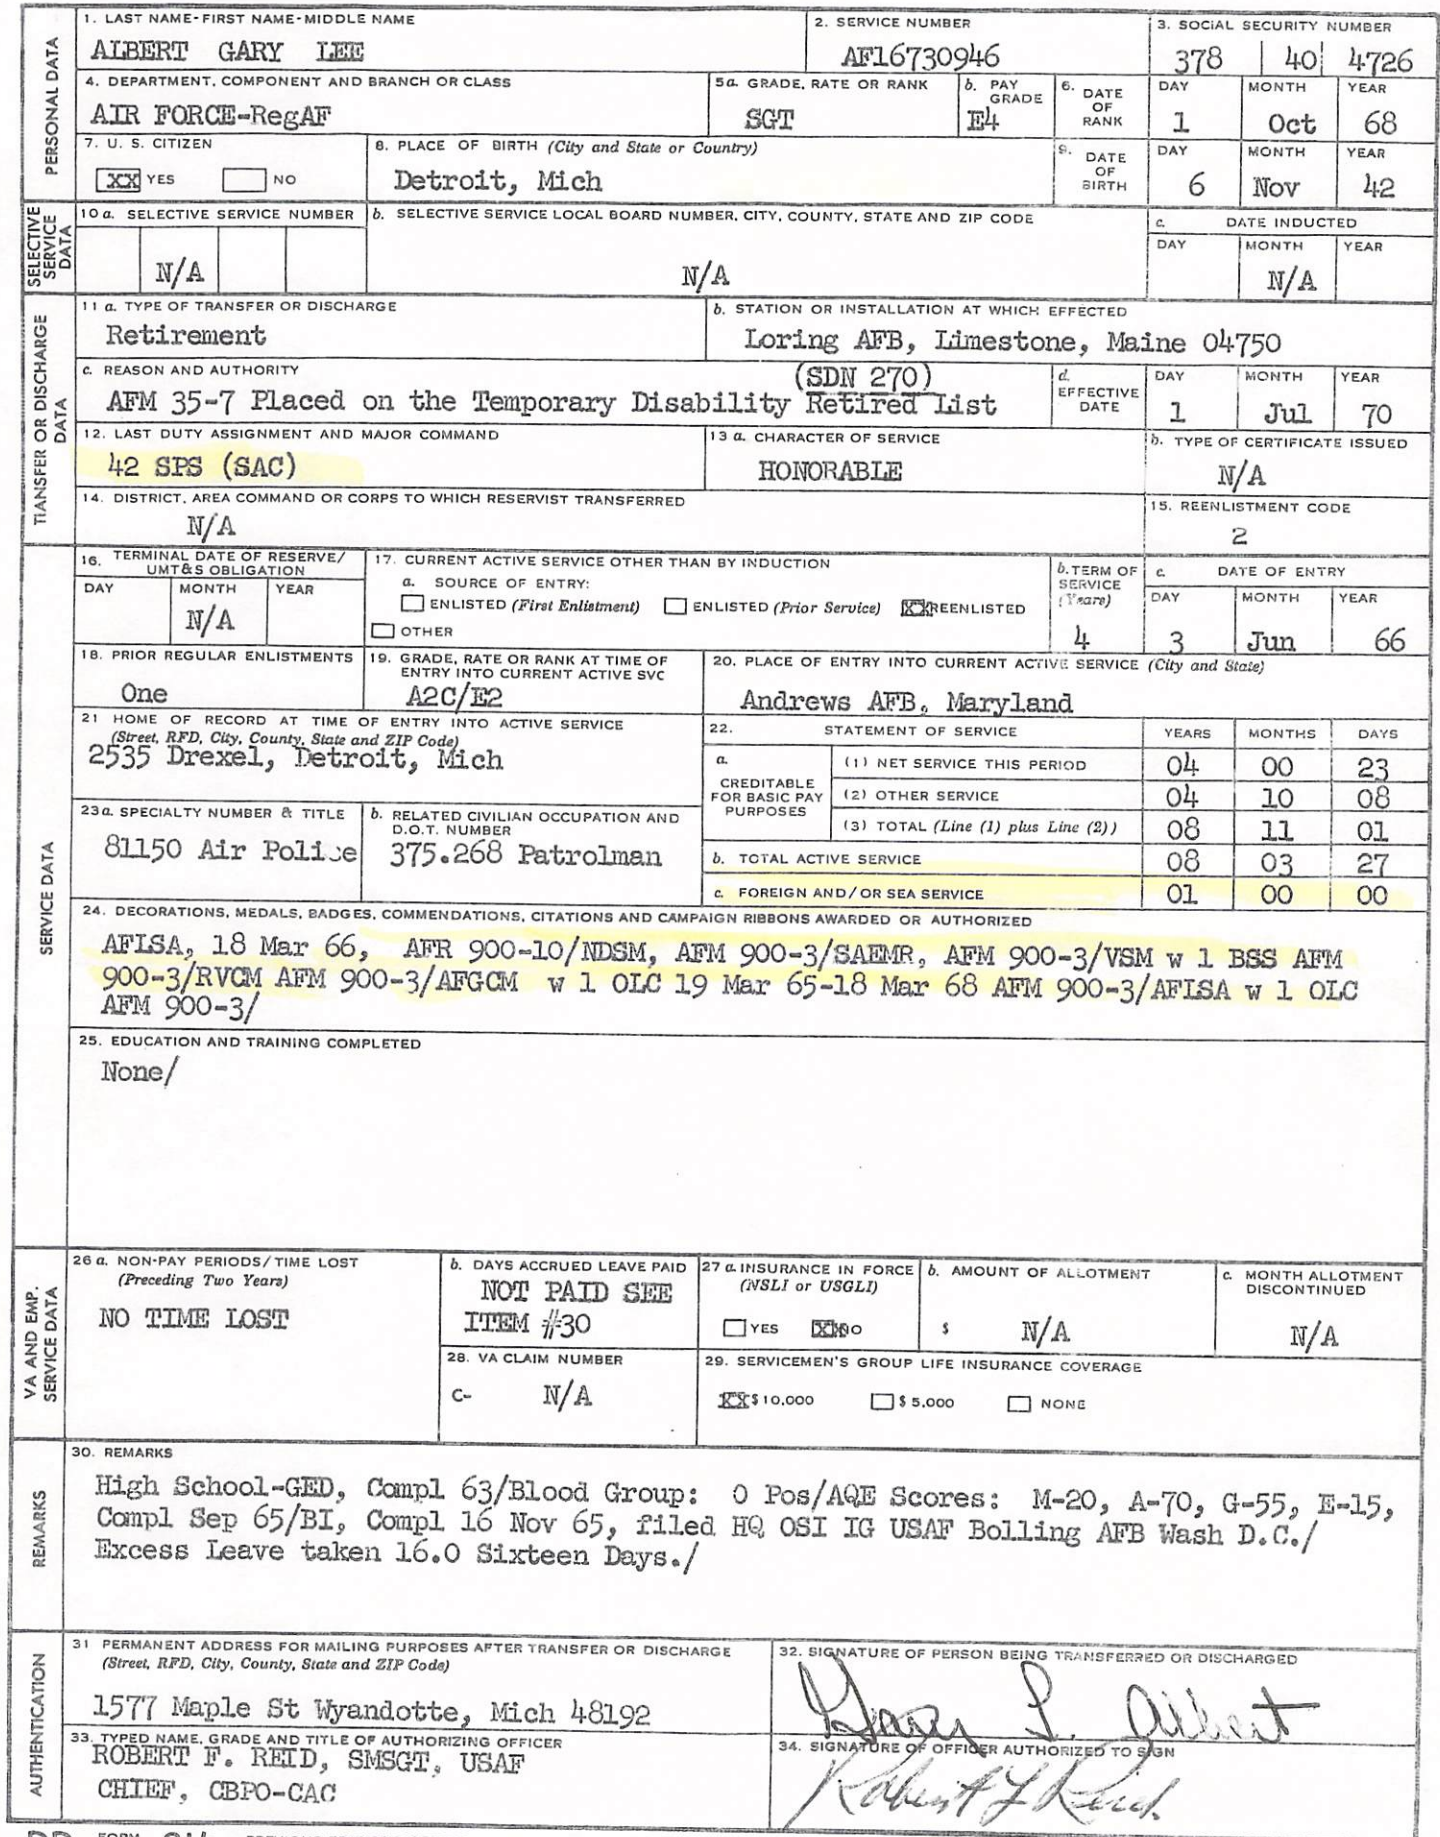 PERSONAL DATA
1. LAST NAME-FIRST NAME-MIDDLE NAME
ALBERT GARY LEE
2. SERVICE NUMBER
AF16730946
3. SOCIAL SECURITY NUMBER
378 40 4726
4. DEPARTMENT, COMPONENT AND BRANCH OR CLASS
AIR FORCE-RegAF
5a. GRADE, RATE OR RANK
SGT
b. PAY GRADE
E4
6. DATE OF RANK
DAY MONTH YEAR
1 Oct 68
7. U. S. CITIZEN
XX YES NO
8. PLACE OF BIRTH (City and State or Country)
Detroit, Mich
9. DATE OF BIRTH
DAY MONTH YEAR
6 Nov 42
SELECTIVE SERVICE DATA
10 a. SELECTIVE SERVICE NUMBER
N/A
b. SELECTIVE SERVICE LOCAL BOARD NUMBER, CITY, COUNTY, STATE AND ZIP CODE
N/A
c. DATE INDUCTED
DAY MONTH YEAR
N/A
TRANSFER OR DISCHARGE DATA
11 a. TYPE OF TRANSFER OR DISCHARGE
Retirement
b. STATION OR INSTALLATION AT WHICH EFFECTED
Loring AFB, Limestone, Maine 04750
c. REASON AND AUTHORITY
(SDN 270)
AFM 35-7 Placed on the Temporary Disability Retired List
d. EFFECTIVE DATE
DAY MONTH YEAR
1 Jul 70
12. LAST DUTY ASSIGNMENT AND MAJOR COMMAND
42 SPS (SAC)
13 a. CHARACTER OF SERVICE
HONORABLE
b. TYPE OF CERTIFICATE ISSUED
N/A
14. DISTRICT, AREA COMMAND OR CORPS TO WHICH RESERVIST TRANSFERRED
N/A
15. REENLISTMENT CODE
2
SERVICE DATA
16. TERMINAL DATE OF RESERVE/
UMT&S OBLIGATION
DAY MONTH YEAR
N/A
17. CURRENT ACTIVE SERVICE OTHER THAN BY INDUCTION
a. SOURCE OF ENTRY:
ENLISTED (First Enlistment) ENLISTED (Prior Service) XX REENLISTED
OTHER
b. TERM OF SERVICE (Years)
4
c. DATE OF ENTRY
DAY MONTH YEAR
3 Jun 66
18. PRIOR REGULAR ENLISTMENTS
One
19. GRADE, RATE OR RANK AT TIME OF
ENTRY INTO CURRENT ACTIVE SVC
A2C/E2
20. PLACE OF ENTRY INTO CURRENT ACTIVE SERVICE (City and State)
Andrews AFB, Maryland
21 HOME OF RECORD AT TIME OF ENTRY INTO ACTIVE SERVICE
(Street, RFD, City, County, State and ZIP Code)
2535 Drexel, Detroit, Mich
22. STATEMENT OF SERVICE YEARS MONTHS DAYS
a. CREDITABLE FOR BASIC PAY PURPOSES
(1) NET SERVICE THIS PERIOD 04 00 23
(2) OTHER SERVICE 04 10 08
(3) TOTAL (Line (1) plus Line (2)) 08 11 01
b. TOTAL ACTIVE SERVICE 08 03 27
c. FOREIGN AND/OR SEA SERVICE 01 00 00
23a. SPECIALTY NUMBER & TITLE
81150 Air Police
b. RELATED CIVILIAN OCCUPATION AND
D.O.T. NUMBER
375.268 Patrolman
24. DECORATIONS, MEDALS, BADGES, COMMENDATIONS, CITATIONS AND CAMPAIGN RIBBONS AWARDED OR AUTHORIZED
AFISA, 18 Mar 66, AFR 900-10/NDSM, AFM 900-3/SAEMR, AFM 900-3/VSM w 1 BSS AFM
900-3/RVCM AFM 900-3/AFGCM w 1 OLC 19 Mar 65-18 Mar 68 AFM 900-3/AFISA w 1 OLC
AFM 900-3/
25. EDUCATION AND TRAINING COMPLETED
None/
VA AND EMP. SERVICE DATA
26 a. NON-PAY PERIODS/TIME LOST
(Preceding Two Years)
NO TIME LOST
b. DAYS ACCRUED LEAVE PAID
NOT PAID SEE
ITEM #30
27 a. INSURANCE IN FORCE
(NSLI or USGLI)
YES XX NO
b. AMOUNT OF ALLOTMENT
$ N/A
c. MONTH ALLOTMENT
DISCONTINUED
N/A
28. VA CLAIM NUMBER
C- N/A
29. SERVICEMEN'S GROUP LIFE INSURANCE COVERAGE
XX $10,000 $5,000 NONE
REMARKS
30. REMARKS
High School-GED, Compl 63/Blood Group: O Pos/AQE Scores: M-20, A-70, G-55, E-15,
Compl Sep 65/BI, Compl 16 Nov 65, filed HQ OSI IG USAF Bolling AFB Wash D.C./
Excess Leave taken 16.0 Sixteen Days./
AUTHENTICATION
31 PERMANENT ADDRESS FOR MAILING PURPOSES AFTER TRANSFER OR DISCHARGE
(Street, RFD, City, County, State and ZIP Code)
1577 Maple St Wyandotte, Mich 48192
32. SIGNATURE OF PERSON BEING TRANSFERRED OR DISCHARGED
Gary L. Albert
33. TYPED NAME, GRADE AND TITLE OF AUTHORIZING OFFICER
ROBERT F. REID, SMSGT, USAF
CHIEF, CBPO-CAC
34. SIGNATURE OF OFFICER AUTHORIZED TO SIGN
Robert F Reid